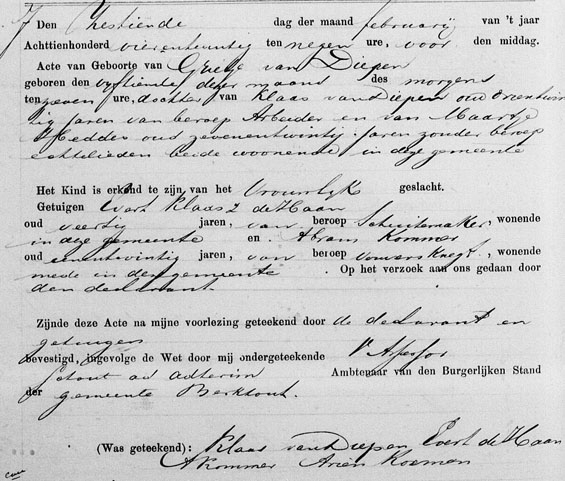 Den Zestiende dag der maand februarij van 't jaar
Achttienhonderd vierentwintig ten negen ure, voor den middag.
Acte van Geboorte van Grietje van Diepen
geboren den vyftiende dezer maand des morgens
ten zeven ure, dochter van Klaas van Diepen oud drieentwin
tig jaren van beroep Arbeider en van Maartje
Hedder oud zevenentwintig jaren zonder beroep
echtelieden beide woonende in deze gemeente
Het Kind is erkend te zijn van het Vrouwlyk geslacht.
Getuigen Evert Klaasz de Haan
oud veertig jaren, van beroep Schuitemaker, wonende
in deze gemeente en Abram Kommer
oud eenentwintig jaren, van beroep bouwers knegt, wonende
mede in deze gemeente . Op het verzoek aan ons gedaan door
den declarant.
Zijnde deze Acte na mijne voorlezing geteekend door de declarant en
getuigen
bevestigd, ingevolge de Wet door mij ondergeteekende
Schout ad adterim Ambtenaar van den Burgerlijken Stand
der gemeente Berkhout.
(Was geteekend): Klaas van Diepen Evert de Haan
A Kommer Arien Koeman